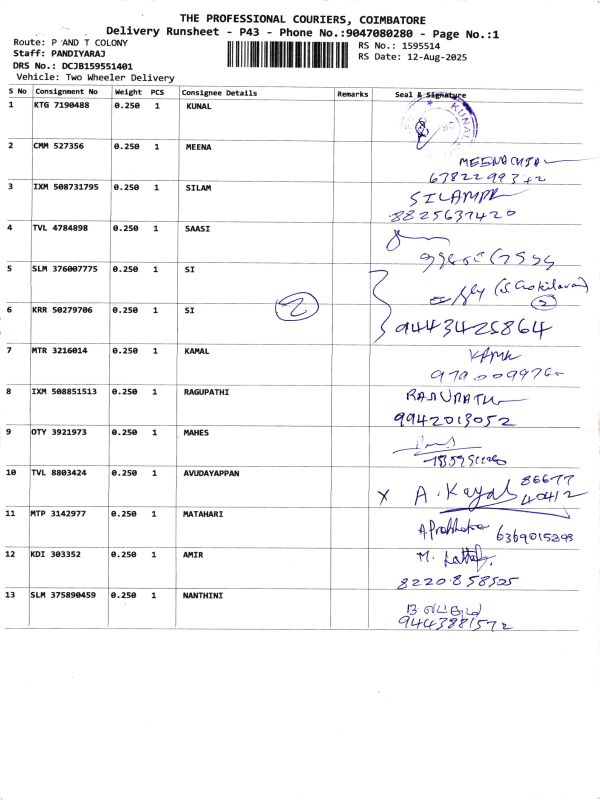 THE PROFESSIONAL COURIERS, COIMBATORE
Delivery Runsheet - P43 - Phone No.:9047080280 - Page No.:1
Route: P AND T COLONY
Staff: PANDIYARAJ
DRS No.: DCJB159551401
Vehicle: Two Wheeler Delivery
RS No.: 1595514
RS Date: 12-Aug-2025
S No Consignment No Weight PCS Consignee Details Remarks Seal & Signature
1 KTG 7190488 0.250 1 KUNAL KUNAL
2 CMM 527356 0.250 1 MEENA
3 IXM 508731795 0.250 1 SILAM
8825637420
4 TVL 4784898 0.250 1 SAASI
5 SLM 376007775 0.250 1 SI
6 KRR 50279706 0.250 1 SI 2
2
9443425864
7 MTR 3216014 0.250 1 KAMAL
8 IXM 508851513 0.250 1 RAGUPATHI
9942013052
9 OTY 3921973 0.250 1 MAHES
10 TVL 8803424 0.250 1 AVUDAYAPPAN
x A. Kayal 86677
40412
11 MTP 3142977 0.250 1 MATAHARI
12 KDI 303352 0.250 1 AMIR
13 SLM 375890459 0.250 1 NANTHINI
9443881572